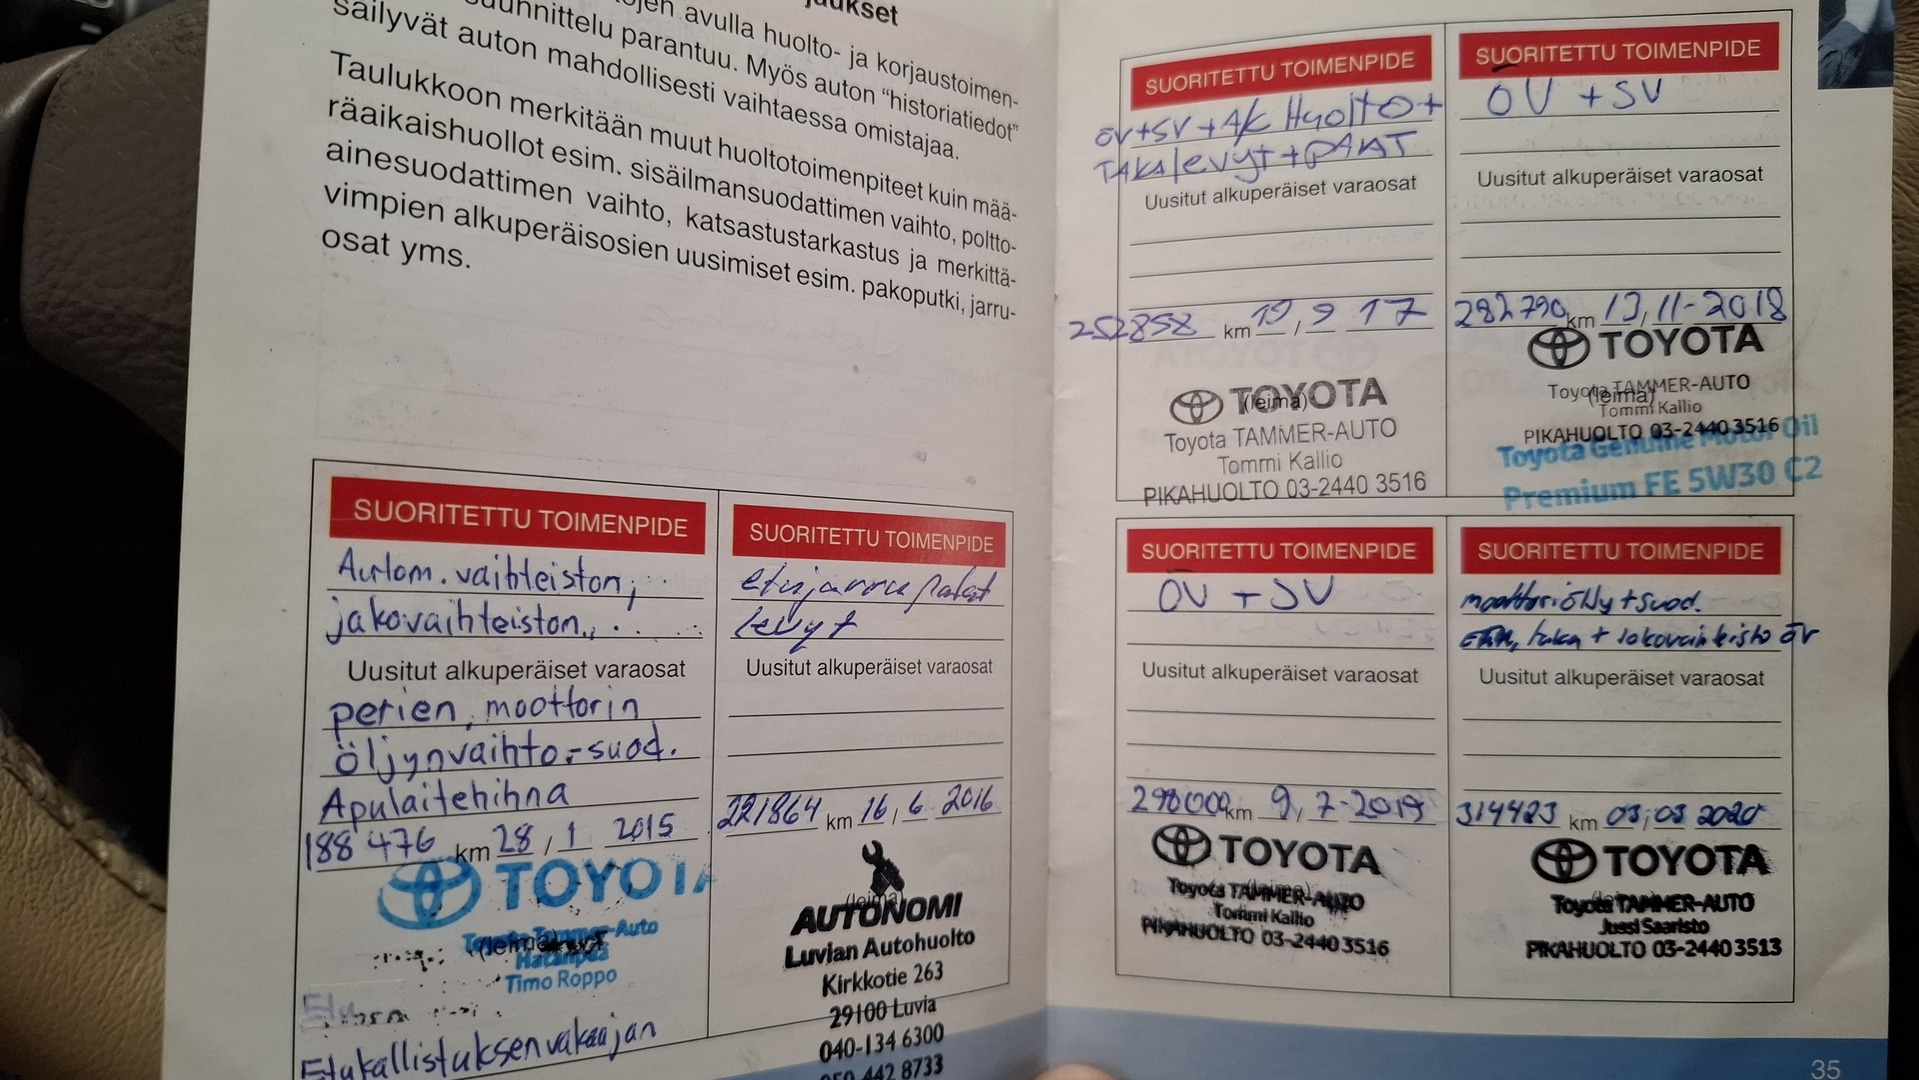 jaukset
ojen avulla huolto- ja korjaustoimen-
suunnittelu parantuu. Myös auton "historiatiedot"
säilyvät auton mahdollisesti vaihtaessa omistajaa.
Taulukkoon merkitään muut huoltotoimenpiteet kuin mää-
räaikaishuollot esim. sisäilmansuodattimen vaihto, poltto-
ainesuodattimen vaihto, katsastustarkastus ja merkittä-
vimpien alkuperäisosien uusimiset esim. pakoputki, jarru-
osat yms.
SUORITETTU TOIMENPIDE
Autom. vaihteiston,
jakovaihteiston,
Uusitut alkuperäiset varaosat
perien, moottorin
öljynvaihto,-suod.
Apulaitehihna
188 476 km 28 / 1 2015
TOYOTA
Toyota Tammer-Auto
(leima)
Hatanpää
Timo Roppo
Etukallistuksenvakaajan
SUORITETTU TOIMENPIDE
etujarrupalat
levyt
Uusitut alkuperäiset varaosat
221864 km 16 / 6 2016
(leima)
AUTONOMI
Luvian Autohuolto
Kirkkotie 263
29100 Luvia
040-134 6300
050 442 8733
SUORITETTU TOIMENPIDE
ÖV+SV+A/C Huolto+
TAKAlevyt+PALAT
Uusitut alkuperäiset varaosat
252858 km 19 / 9 17
TOYOTA
(leima)
Toyota TAMMER-AUTO
Tommi Kallio
PIKAHUOLTO 03-2440 3516
SUORITETTU TOIMENPIDE
ÖV +SV
Uusitut alkuperäiset varaosat
282790 km 13, 11-2018
TOYOTA
Toyota TAMMER-AUTO
(leima)
Tommi Kallio
PIKAHUOLTO 03-2440 3516
Toyota Genuine Motor Oil
Premium FE 5W30 C2
SUORITETTU TOIMENPIDE
ÖV + SV
Uusitut alkuperäiset varaosat
298000 km 9, 7-2019
TOYOTA
Toyota TAMMER-AUTO
(leima)
Tommi Kallio
PIKAHUOLTO 03-2440 3516
SUORITETTU TOIMENPIDE
moottoriöljy + suod.
etu, taka + jakovaihteisto öv
Uusitut alkuperäiset varaosat
314423 km 03, 03 2020
TOYOTA
(leima)
Toyota TAMMER-AUTO
Jussi Saaristo
PIKAHUOLTO 03-2440 3513
35